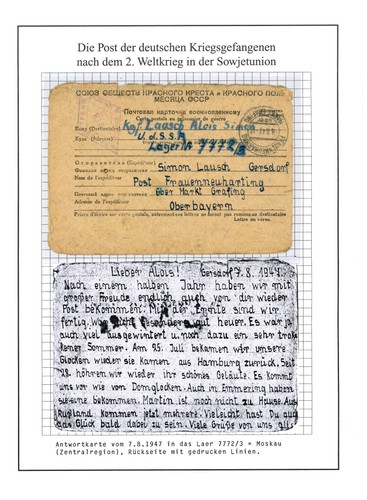 Die Post der deutschen Kriegsgefangenen
nach dem 2. Weltkrieg in der Sowjetunion
СОЮЗ ОБЩЕСТВ КРАСНОГО КРЕСТА и КРАСНОГО ПОЛУ-
МЕСЯЦА СССР
Почтовая карточка военнопленному
Carte postale au prisonnier de guerre
Кому (Destinataire) Kgf. Lausch Alois Simon
Куда (Adresse) U.d.S.S.R
Lager № 7772/3
Отправитель (Expéditeur)
Фамилия имя отправителя Simon Lausch Gersdorf
Nom de l'expéditeur
Post Frauenneuharting
Почтовый адрес отправителя über Markt Grafing
Adresse de l'expéditeur
Oberbayern
Prière d'écrire sur carte postale, autrement ces lettres ne seront pas remises au destinataire
Lieber Alois! Gersdorf 7.8.1947.
Nach einem halben Jahr haben wir mit
großer Freude endlich auch von dir wieder
Post bekommen. Mit der Ernte sind wir
fertig, war nicht besonders gut heuer. Es war ja
auch viel ausgewintert u. noch dazu ein sehr trok
kener Sommer. Am 25. Juli bekamen wir unsere
Glocken wieder sie kamen aus Hamburg zurück. Seit
28. hören wir wieder ihr schönes Geläute. Es kommt
uns vor wie von Domglocken. Auch in Emmering haben
sie eine bekommen. Martin ist noch nicht zu Hause. Aus
Rußland kommen jetzt mehrere. Vieleicht hast Du auch
das Glück bald dabei zu sein. Viele Grüße von uns all
Antwortkarte vom 7.8.1947 in das Laer 7772/3 = Moskau
(Zentralregion), Rückseite mit gedrucken Linien.